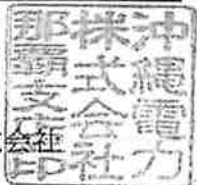 沖縄電力
株式会社
那覇支店印
会社